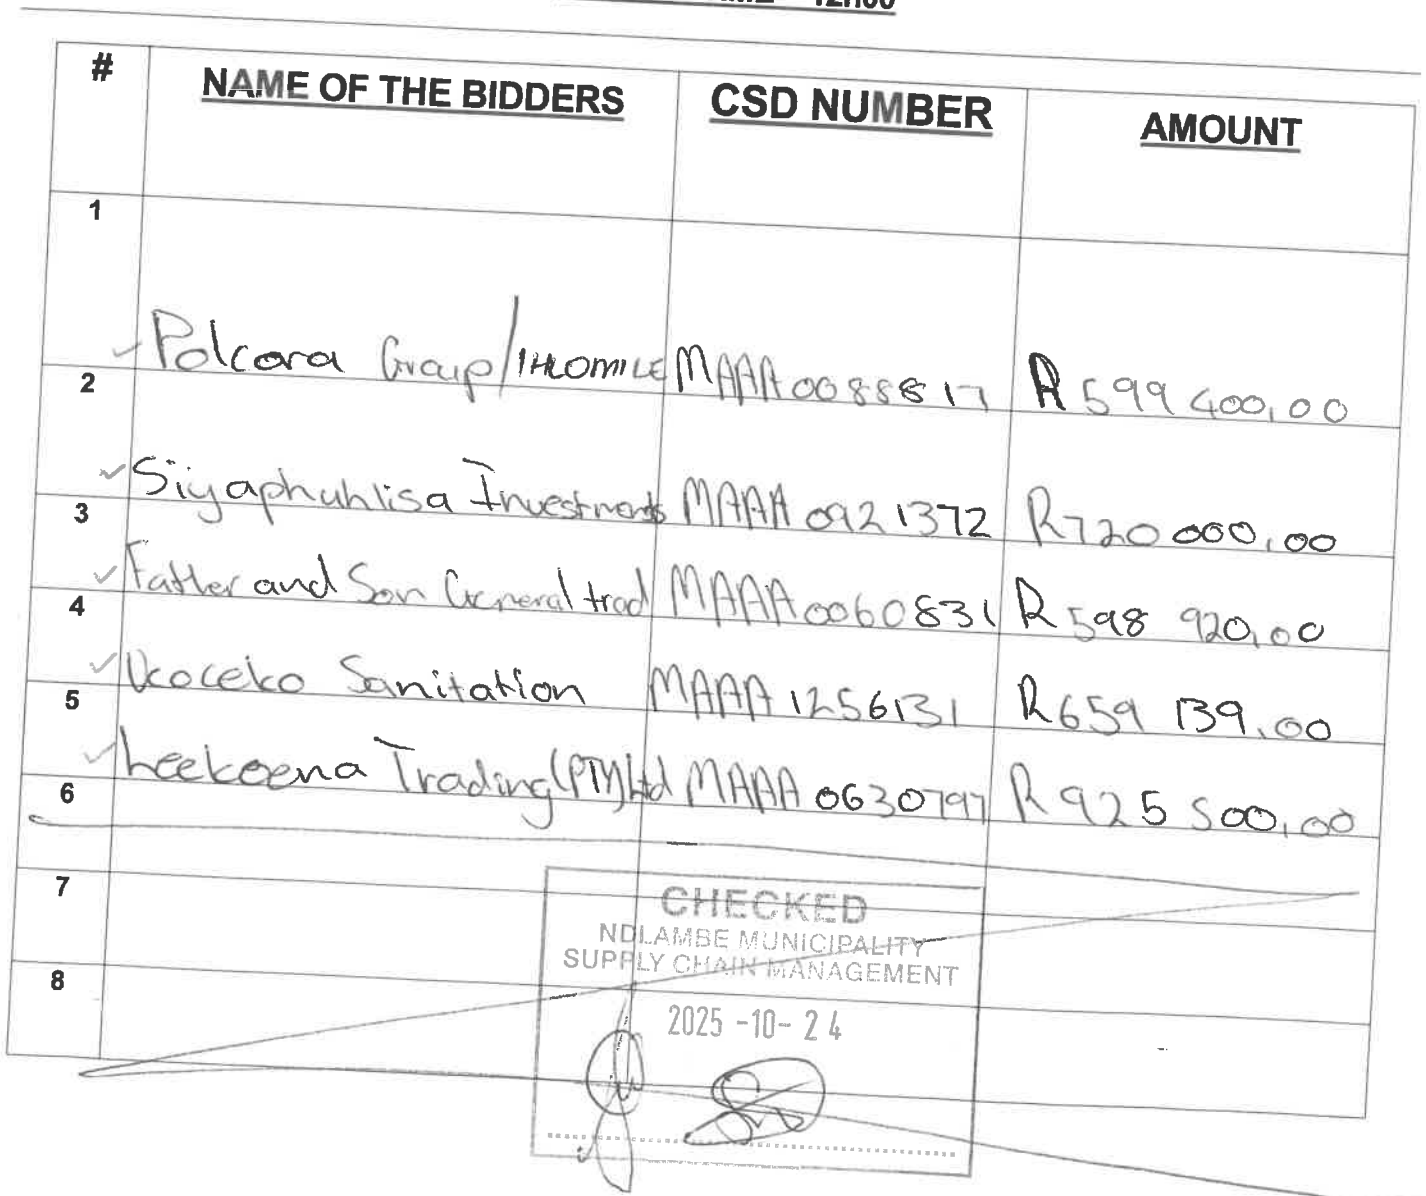 12h00
# NAME OF THE BIDDERS CSD NUMBER AMOUNT
1
Polcora Group/IHLOMILE MAAA0088817 R 599 400,00
2
Siyaphuhlisa Investments MAAA 0921372 R720 000,00
3
Father and Son General trad MAAA0060831 R 598 920,00
4
Sanitation MAAA 1256131 R659 139,00
5
Leekoena Trading(PTY)Ltd MAAA 0630797 R 925 500,00
6
7
CHECKED
NDLAMBE MUNICIPALITY
SUPPLY CHAIN MANAGEMENT
8
2025 -10- 24